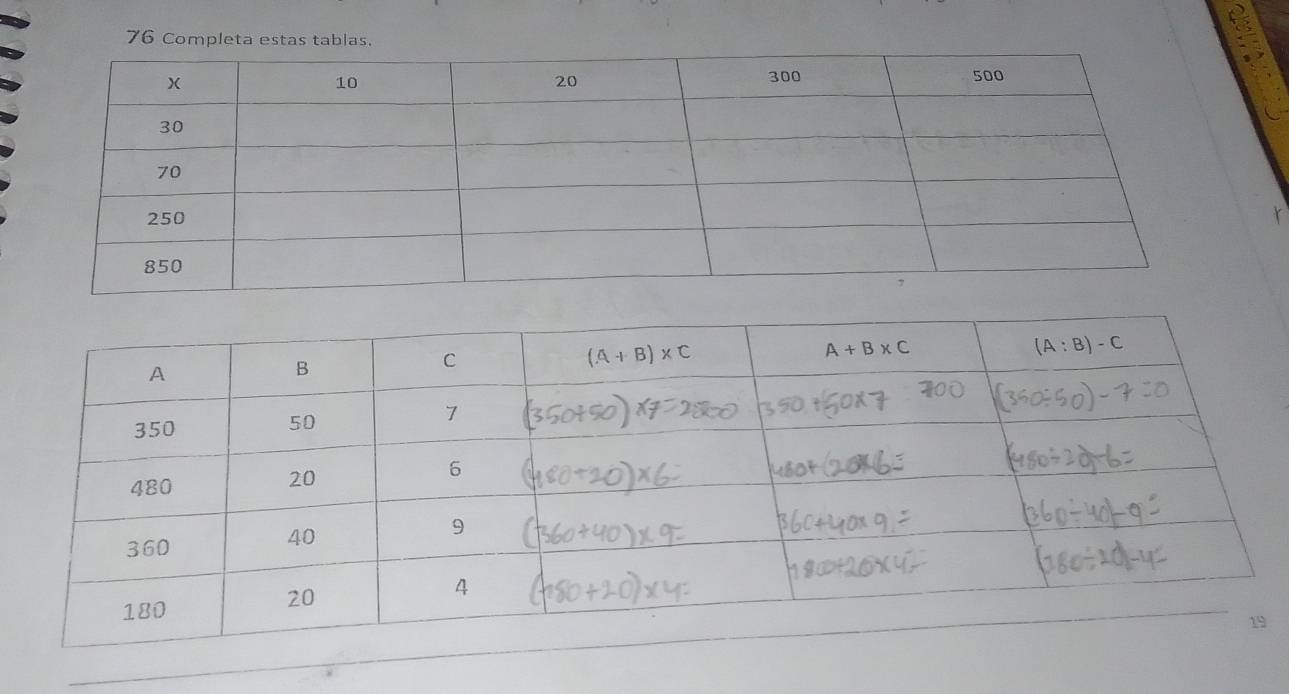 76 Completa estas tablas.
X 10 20 300 500
30
70
250
850
A B C (A + B) x C A + B x C (A : B) - C
350 50 7 (350+50)x7=2800 350+50x7 700 (350÷50)-7=0
480 20 6 (480+20)x6= 480+(20x6= (480÷20)-6=
360 40 9 (360+40)x9= 360+40x9= (360÷40)-9=
180 20 4 (180+20)x4= 180+20x4= (180÷20)-4=
19